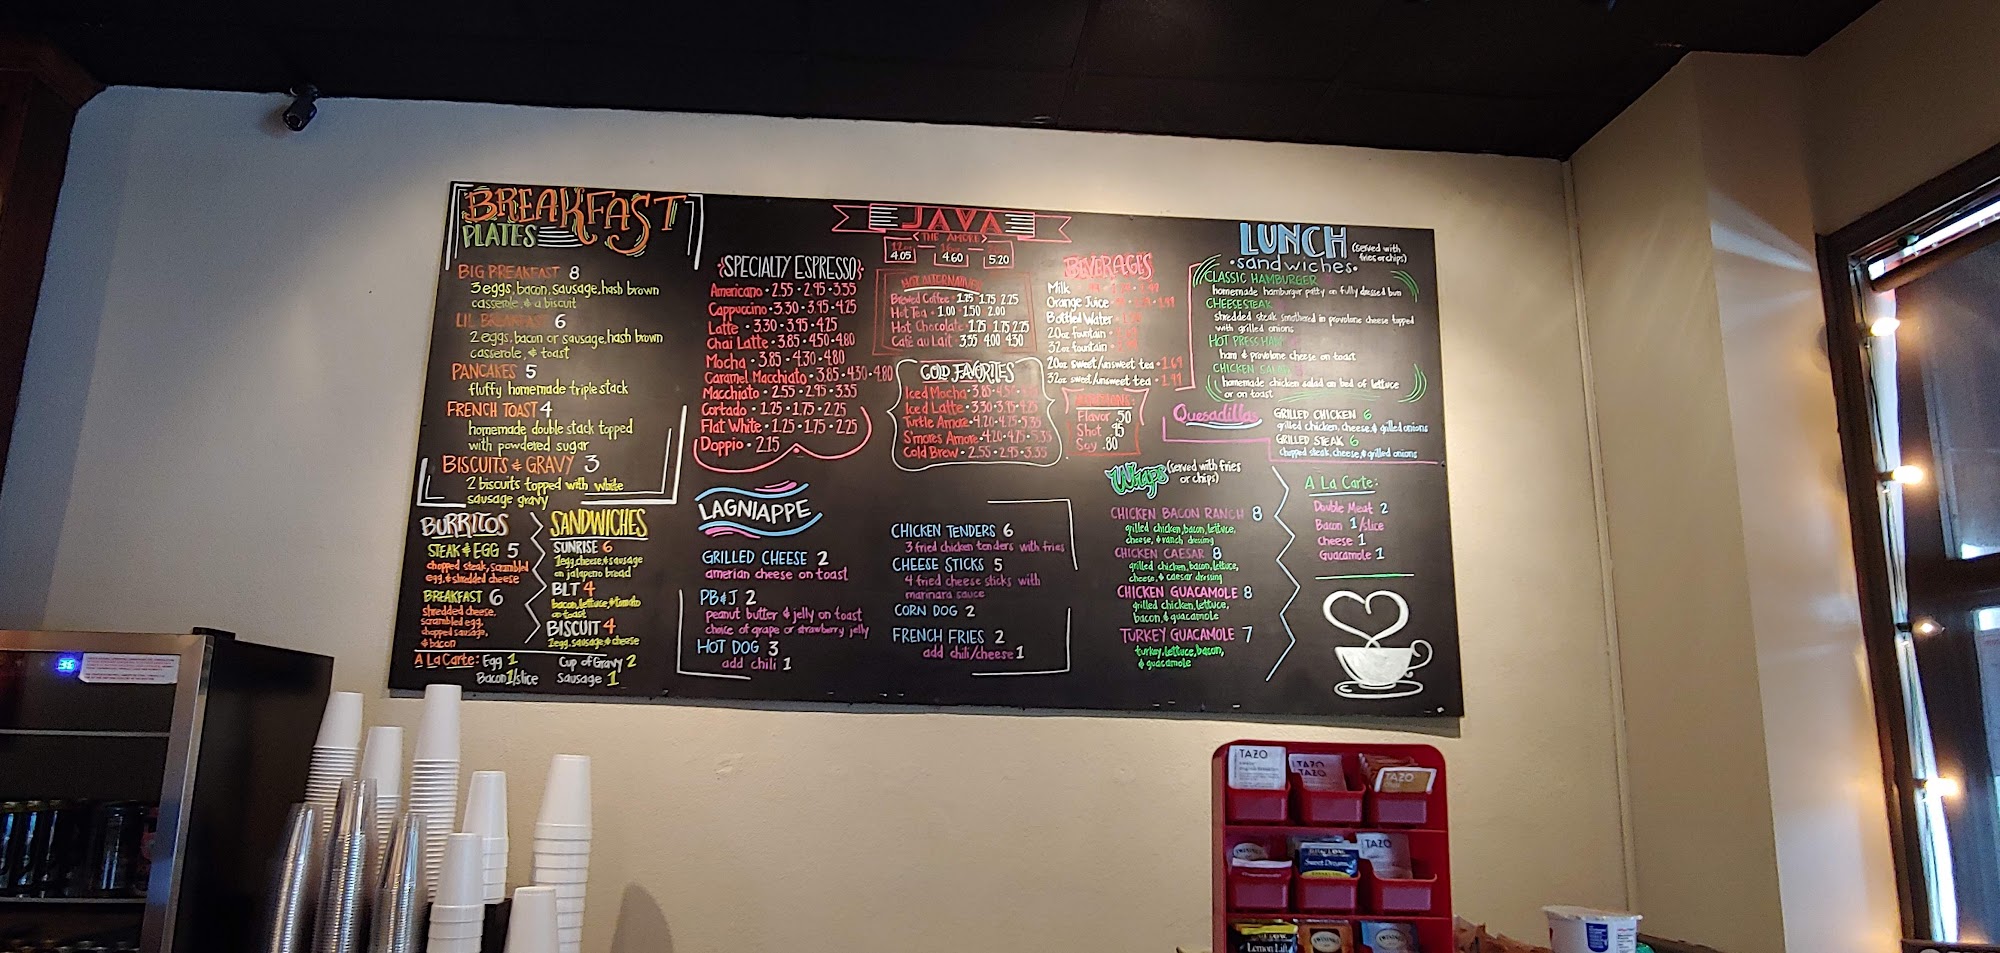 BREAKFAST
PLATES
BIG BREAKFAST 8
3 eggs, bacon, sausage, hash brown
casserole, & a biscuit
LIL BREAKFAST 6
2 eggs, bacon or sausage, hash brown
casserole, & toast
PANCAKES 5
fluffy homemade triple stack
FRENCH TOAST 4
homemade double stack topped
with powdered sugar
BISCUITS & GRAVY 3
2 biscuits topped with white
sausage gravy
BURRITOS
STEAK & EGG 5
chopped steak, scrambled
egg, & shredded cheese
BREAKFAST 6
shredded cheese,
scrambled egg,
chopped sausage,
& bacon
SANDWICHES
SUNRISE 6
1 egg, cheese, & sausage
on jalapeno bread
BLT 4
bacon, lettuce, & tomato
on toast
BISCUIT 4
1 egg, sausage, & cheese
A La Carte: Egg 1 Cup of Gravy 2
Bacon 1/slice Sausage 1
JAVA
THE AMORE
4.05 4.60 5.20
SPECIALTY ESPRESSO
Americano • 2.55 • 2.95 • 3.35
Cappuccino • 3.30 • 3.95 • 4.25
Latte • 3.30 • 3.95 • 4.25
Chai Latte • 3.85 • 4.50 • 4.80
Mocha • 3.85 • 4.30 • 4.80
Caramel Macchiato • 3.85 • 4.30 • 4.80
Macchiato • 2.55 • 2.95 • 3.35
Cortado • 1.25 • 1.75 • 2.25
Flat White • 1.25 • 1.75 • 2.25
Doppio • 2.15
HOT ALTERNATIVES
Brewed Coffee • 1.25 1.75 2.25
Hot Tea • 1.00 1.50 2.00
Hot Chocolate 1.25 1.75 2.25
Café au Lait 3.55 4.00 4.30
COLD FAVORITES
Iced Mocha • 3.85 • 4.50
Iced Latte • 3.30 • 3.95 • 4.25
Turtle Amore • 4.20 • 4.75 • 5.35
S'mores Amore • 4.20 • 4.75 • 5.35
Cold Brew • 2.55 • 2.95 • 3.35
BEVERAGES
Milk
Orange Juice
Bottled Water
20oz fountain
32oz fountain
20oz sweet/unsweet tea • 1.69
32oz sweet/unsweet tea • 1.99
ADDITIONS
Flavor .50
Shot .95
Soy .80
LAGNIAPPE
GRILLED CHEESE 2
amerian cheese on toast
PB&J 2
peanut butter & jelly on toast
choice of grape or strawberry jelly
HOT DOG 3
add chili 1
CHICKEN TENDERS 6
3 fried chicken tenders with fries
CHEESE STICKS 5
4 fried cheese sticks with
marinara sauce
CORN DOG 2
FRENCH FRIES 2
add chili/cheese 1
LUNCH
(served with
fries or chips)
• sandwiches •
CLASSIC HAMBURGER
homemade hamburger patty on fully dressed bun
CHEESESTEAK
shredded steak smothered in provolone cheese topped
with grilled onions
HOT PRESS HAM
ham & provolone cheese on toast
CHICKEN SALAD
homemade chicken salad on bed of lettuce
or on toast
Quesadillas
GRILLED CHICKEN 6
grilled chicken, cheese, & grilled onions
GRILLED STEAK 6
chopped steak, cheese, & grilled onions
Wraps (served with fries
or chips)
CHICKEN BACON RANCH 8
grilled chicken, bacon, lettuce,
cheese, & ranch dressing
CHICKEN CAESAR 8
grilled chicken, bacon, lettuce,
cheese, & caesar dressing
CHICKEN GUACAMOLE 8
grilled chicken, lettuce,
bacon, & guacamole
TURKEY GUACAMOLE 7
turkey, lettuce, bacon,
& guacamole
A La Carte:
Double Meat 2
Bacon 1/slice
Cheese 1
Guacamole 1
TAZO
TAZO
TAZO
TAZO
TAZO
Sweet Dreams
TWININGS
TWININGS
Lemon Lift